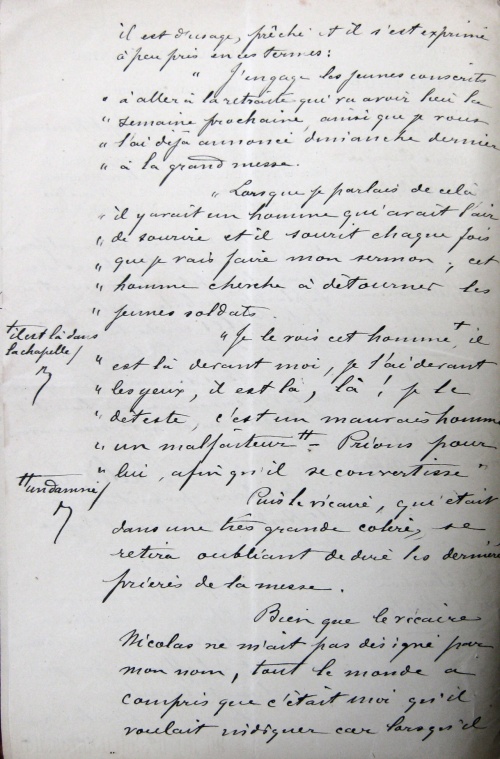 il est d'usage, prêché et il s'est exprimé
à peu près en ces termes:
" J'engage les jeunes conscrits
" à aller à la retraite qui va avoir lieu la
" semaine prochaine, ainsi que je vous
" l'ai déjà annoncé dimanche dernier
" à la grand messe.
" Lorsque je parlais de cela
" il y avait un homme qui avait l'air
" de sourire et il sourit chaque fois
" que je vais faire mon sermon; cet
" homme cherche à détourner les
" jeunes soldats.
+ il est là dans
la chapelle/
" Je le vois cet homme +, il
" est là devant moi, je l'ai devant
" les yeux, il est là, là! je le
" déteste, c'est un mauvais homme
" un malfaiteur ++ - Prions pour
" lui, afin qu'il se convertisse "
++ un damné/
Puis le vicaire, qui était
dans une très grande colère, se
retira oubliant de dire les dernières
prières de la messe.
Bien que le vicaire
Nicolas ne m'ait pas désigné par
mon nom, tout le monde a
compris que c'était moi qu'il
voulait indiquer car lorsqu'il